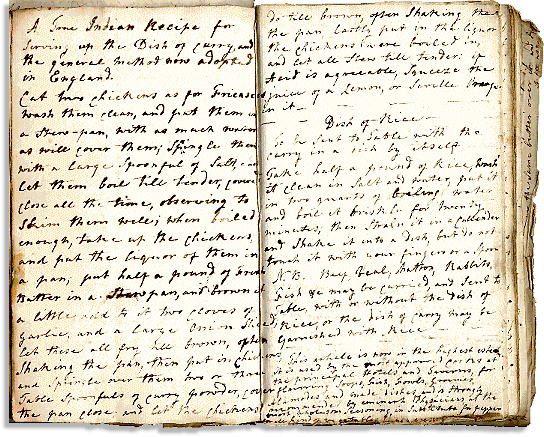 A True Indian Recipe for
Serving up the Dish of Curry, and
the general method now adopted
in England.
Cut two chickens as for Fricassee
wash them clean, and put them in
a Stew-pan, with as much water
as will cover them; Sprinkle them
with a large Spoonful of Salt, and
let them boil till tender, covered
close all the time, observing to
Skim them well; when boiled
enough, take up the chickens,
and put the liquor of them in
a pan; put half a pound of fresh
Butter in a Stew pan, and brown it
a little, add to it two cloves of
Garlic, and a large Onion Sliced
let these all fry till brown, often
Shaking the pan, then put in chickens
and Sprinkle over them two or three
Table Spoonfuls of curry powder, cover
the pan close, and let the chickens
do till brown, often Shaking the
the pan, lastly put in the liquor
the chickens were boiled in,
and let all Stew till tender: if
Acid is agreeable, Squeeze the
juice of a Lemon, or Seville Orange
in it —
Dish of Rice —
To be Sent to Table with the
curry in a dish by itself
Take half a pound of Rice, wash
it clean in Salt and water, put it
in two quarts of boiling water
and boil it briskly for twenty
minutes, then Strain it in a Cullender
and Shake it into a dish, but do not
touch it with your fingers or a Spoon
N.B. Beef, Veal, Mutton, Rabbits,
Fish &c may be curried and Sent to
Table, with or without the dish of
Rice, or the dish of curry may be
Garnished with Rice —
This article is now in the highest
it is used by the most approved Cooks at
the principal Hotels and Taverns, for
flavouring Soups, Fish, Fowls, Gravies,
and made dishes and is strongly
recommended by eminent Physicians of the
Seasoning in Substitute for pepper